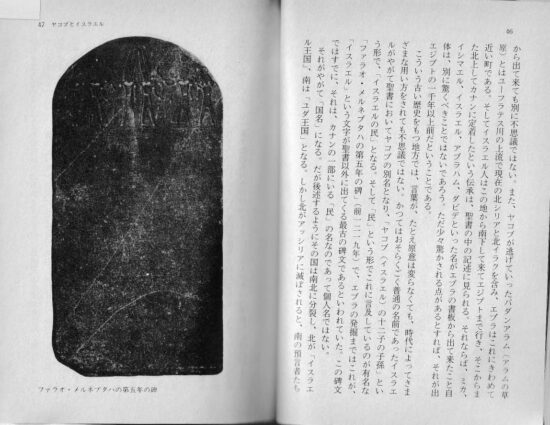 46
から出て来ても別に不思議ではない。また、ヤコブが逃げていったパダン・アラム(アラムの草
原)とはユーフラテス川の上流で現在の北シリアと北イラクを含み、エブラはこれにきわめて
近い町である。そしてイスラエル人はこの地から南下して来てエジプトまで行き、そこからま
た北上してカナンに定着したという伝承は、聖書の中の記述に見られる。それならば、ミカ、
イシマエル、イスラエル、アブラハム、ダビデといった名がエブラの書板から出て来たこと自
体は、別に驚くべきことではないであろう。ただ少々驚かされる点があるとすれば、それが出
エジプトの一千年以上前だということである。
こういう古い歴史をもつ地方では、言葉が、たとえ原意は変らなくても、時代によってさま
ざまな用い方をされても不思議ではない。かつてはおそらくごく普通の名前であったイスラエ
ルがやがて聖書においてヤコブの別名となり、「ヤコブ(イスラエル)の十二子の子孫」とい
う形で、「イスラエルの民」となる。そして「民」という形でこれに言及しているのが有名な
「ファラオ・メルネプタハの第五年の碑」(前一二一九年)で、エブラの発掘まではこれが、
「イスラエル」という文字が聖書以外に出てくる最古の碑文であるといわれていた。この碑文
ではすでに、それは、カナンの一部にいる「民」の名なのであって個人名ではない。
それがやがて「国名」になる。だが後述するようにその国は南北に分裂し、北が「イスラエ
ル王国」、南は「ユダ王国」となる。しかし北がアッシリアに滅ぼされると、南の預言者たち
47 ヤコブとイスラエル
ファラオ・メルネプタハの第五年の碑